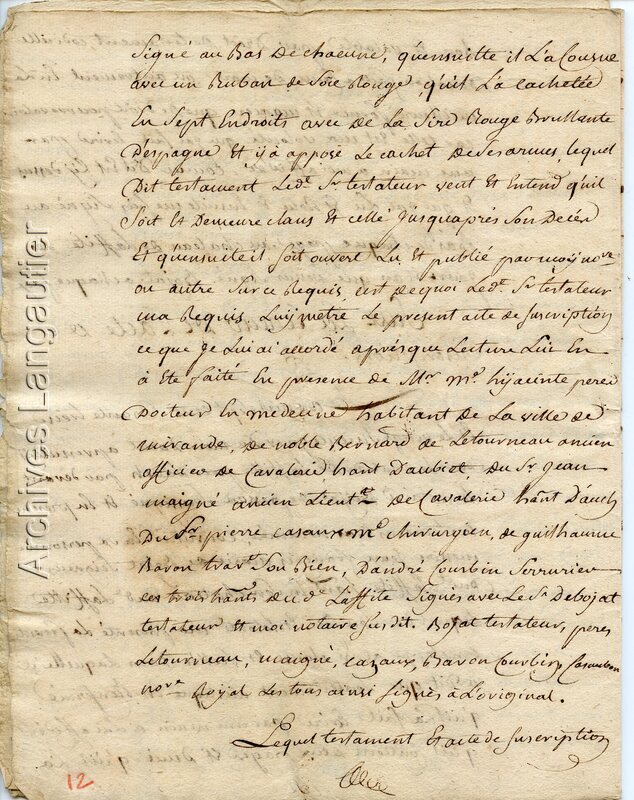 Signé au Bas De chacune, qu'ensuitte il L'a Cousue
avec un Ruban de Soie Rouge, qu'il L'a cachetée
En Sept Endroits avec De La Sire Rouge Brullante
D'espagne Et y a apposé Le cachet De Ses armes, lequel
Dit testament Led.t S.r testateur veut Et Entend qu'il
Soit Et Demeure claus Et cellé Jusqu'après Son Decés
Et qu'ensuite il soit ouvert Lu Et publié par moy no.re
ou autre Sur ce Requis, est De quoi Led.t S.r testateur
m'a Requis, Luy metre Le present acte de Suscription
ce que Je Lui ai accordé après que Lecture Lui En
à Eté faite En presence de M.r m.e hijacinte peres
Docteur En medecine habitant de La ville de
mirande, de noble Bernard de Letourneau ancien
officier de Cavalerie hant D'aubiet, du S.r Jean
maigné ancien Lient.t De Cavalerie hant D'auch
Du S.r pierre cazaux m.e chirurgien, de guilhaume
Baron trav.t Son Bien, D'andré Courbin Serrurier
ces trois hants du d. Laffite Signés avec Le S.r Debojat
testateur Et moi notaire Susdit. Bojat testateur, peres
Letourneau, maigné, cazaux, Baron Courbin, Casaubon
no.re Royal Les tous ainsi Signés à L'original.
Lequel testament Et acte de Suscription
12
Archives Langautier